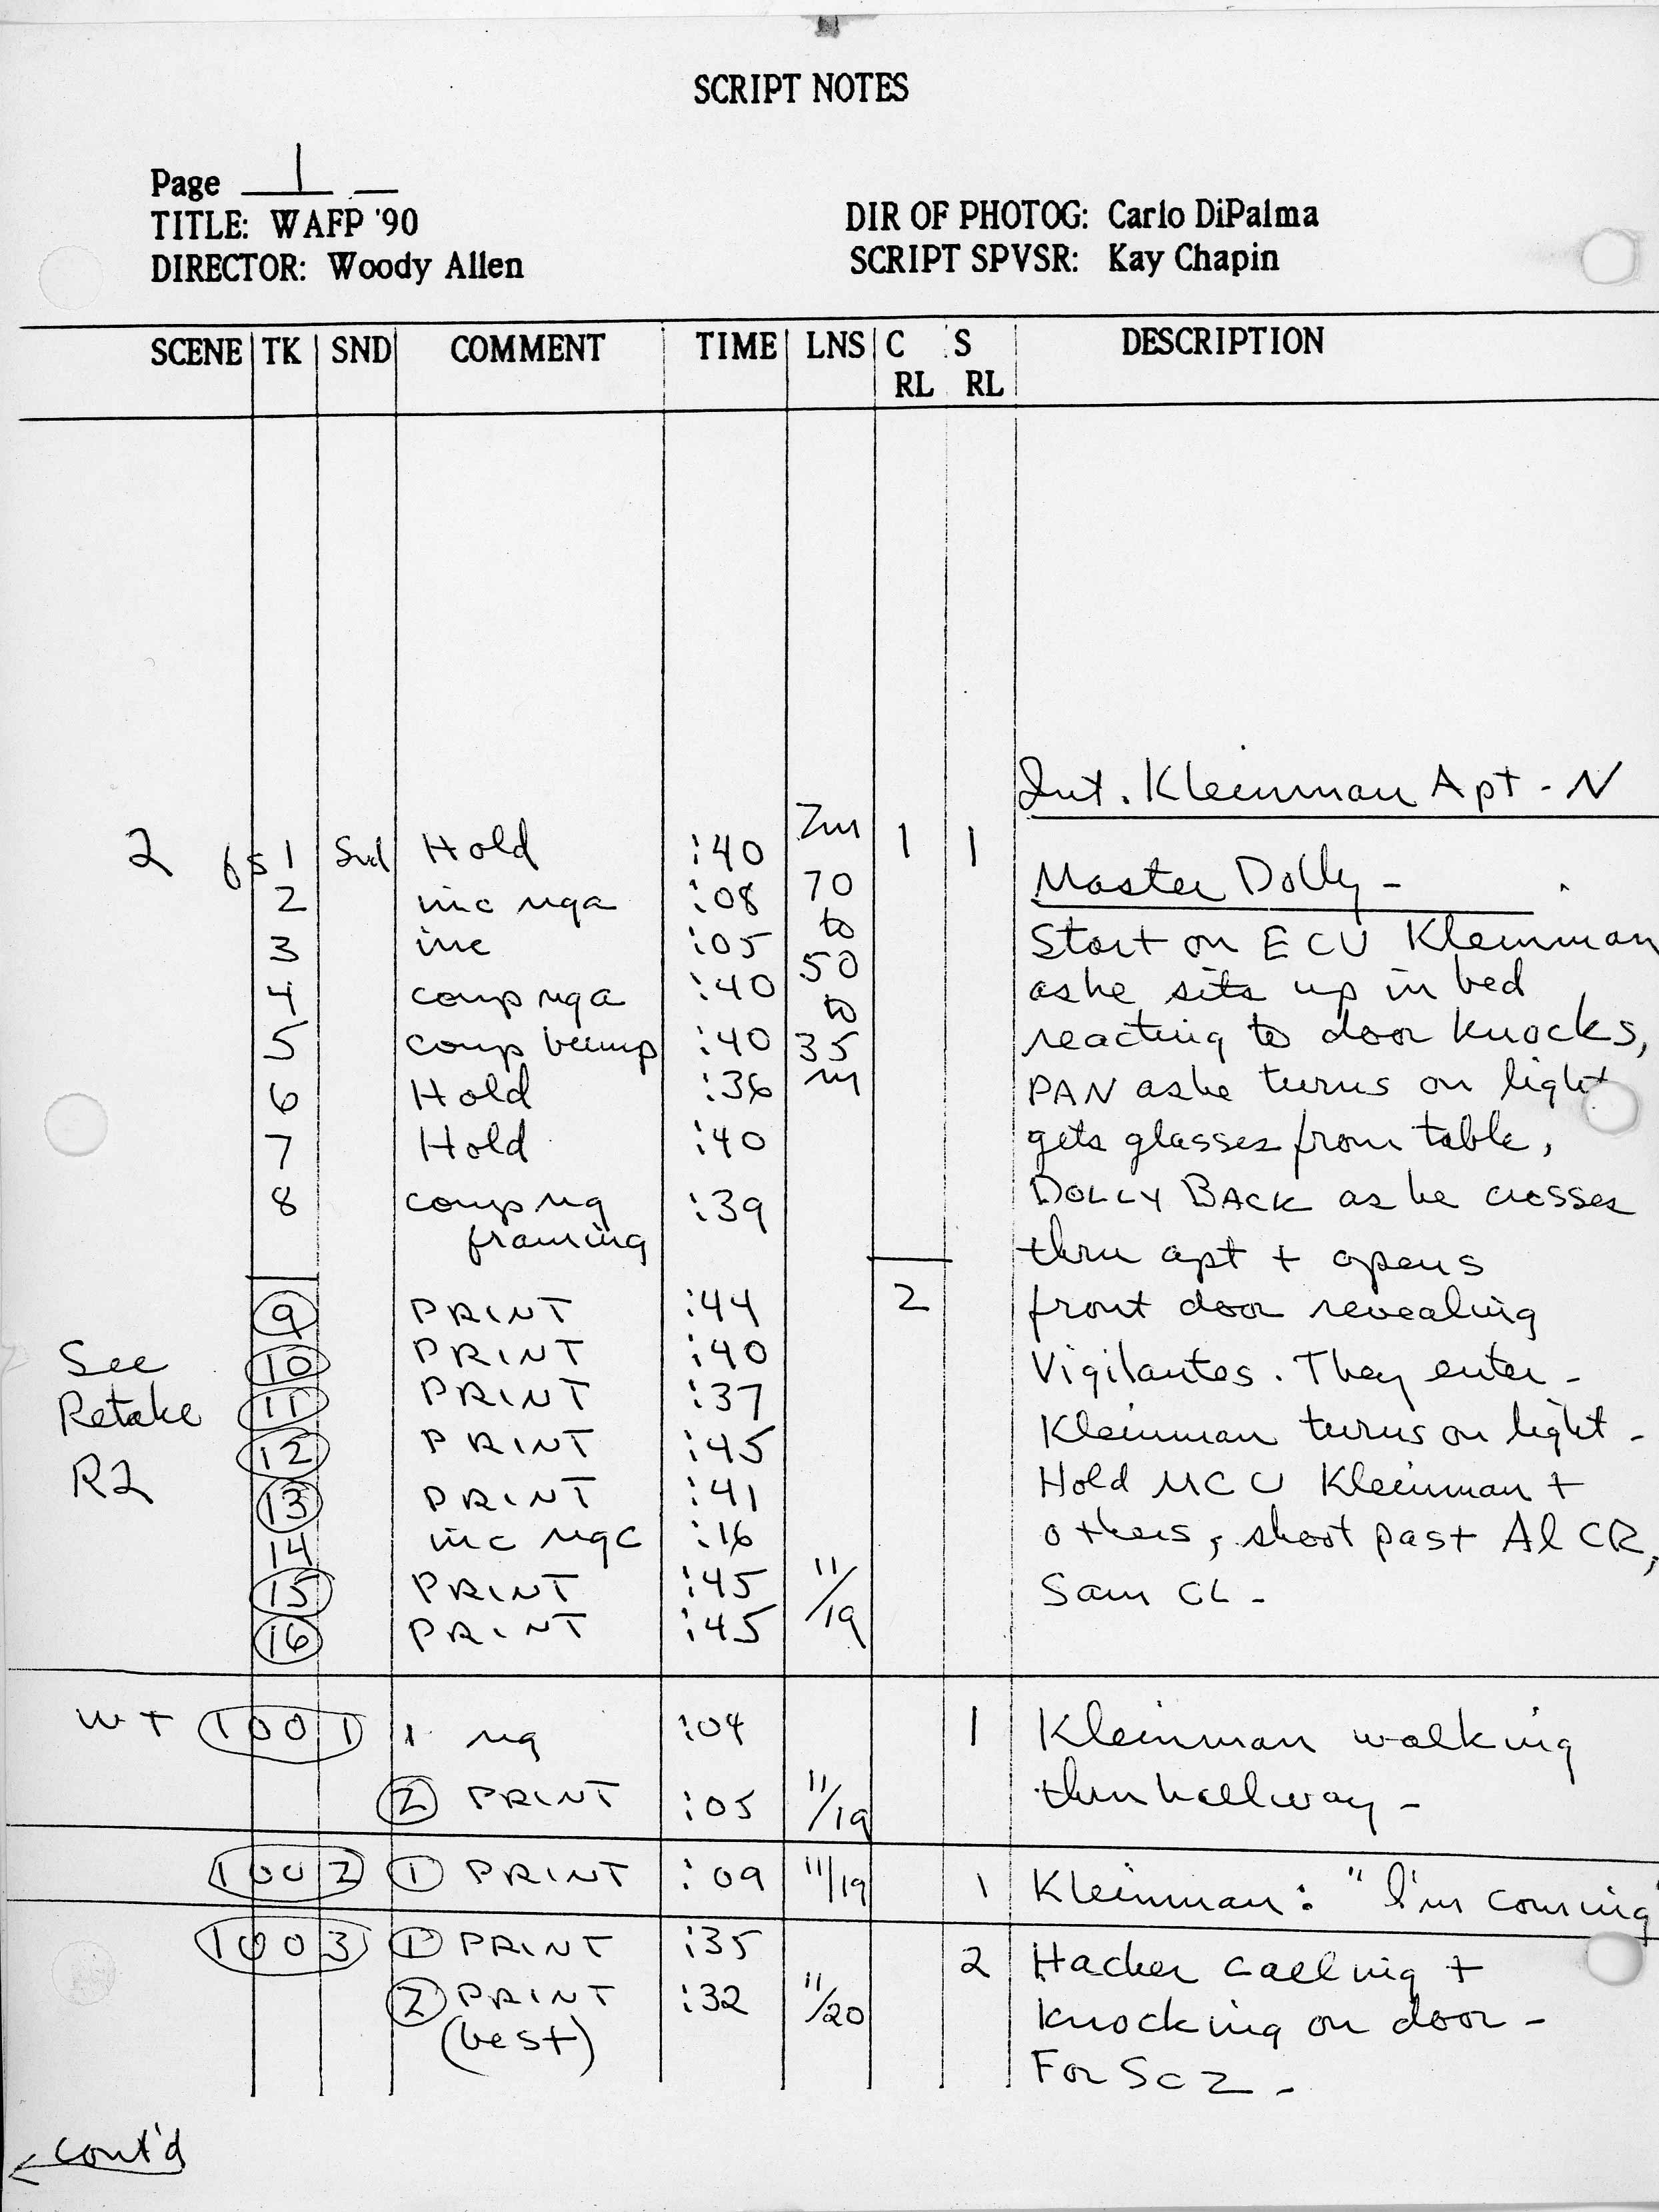 SCRIPT NOTES
Page 1 —
TITLE: WAFP '90
DIR OF PHOTOG: Carlo DiPalma
DIRECTOR: Woody Allen
SCRIPT SPVSR: Kay Chapin
SCENE TK SND COMMENT TIME LNS C RL S RL DESCRIPTION
Int. Kleinman Apt - N
2 1 Snd Hold :40 Zm 1 1
Master Dolly -
2 inc nga :08 70
to
3 inc :05 50 Start on ECU Kleinman
4 comp nga :40 to as he sits up in bed
5 comp bump :40 35 reacting to door knocks,
6 Hold :36 PAN as he turns on light
7 Hold :40 gets glasses from table,
8 comp ng :39 DOLLY BACK as he crosses
framing thru apt + opens
9 PRINT :44 2 front door revealing
See 10 PRINT :40 Vigilantes. They enter -
Retake 11 PRINT :37
12 PRINT :45 Kleinman turns on light -
R2 13 PRINT :41 Hold MCU Kleinman +
14 inc ngc :16 others, shoot past Al CR,
15 PRINT :45 11/19 Sam CL -
16 PRINT :45
WT 1001 1 ng :04 1 Kleinman walking
2 PRINT :05 11/19 thru hallway -
1002 1 PRINT :09 11/19 1 Kleinman: "I'm coming"
1003 1 PRINT :35 2 Hacker calling +
2 PRINT :32 11/20 knocking on door -
(best) For Sc 2 -
cont'd